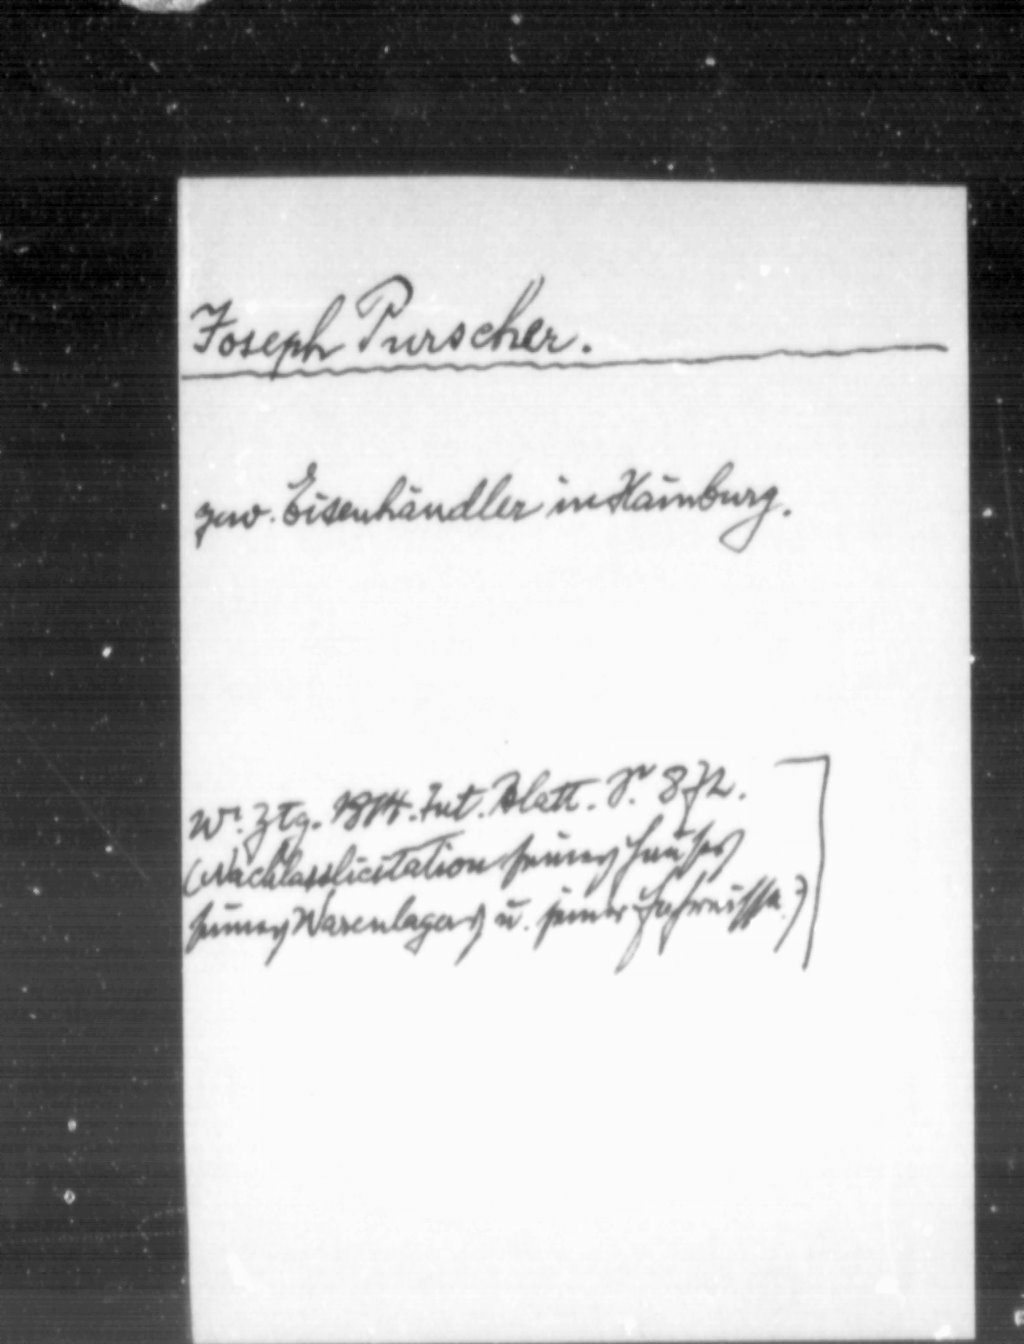 Joseph Purscher.
gew. Eisenhändler in Hainburg.
Wr. Ztg. 1814. Int. Blatt. S. 872.
(Nachlasslicitation seines Hauses
seines Warenlagers u. seiner Fahrnisse.)